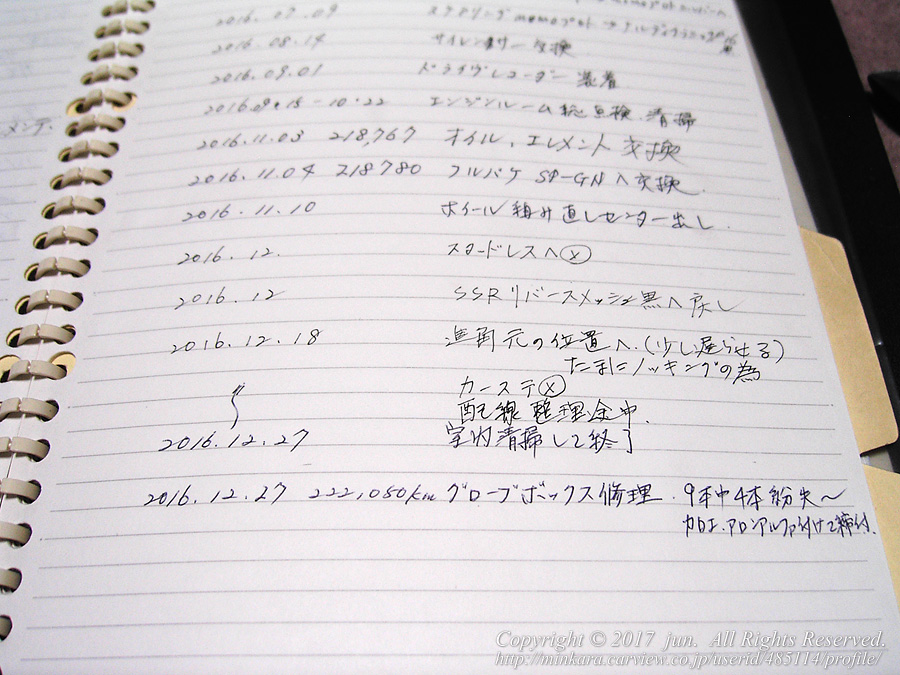 2016.07.09
2016.08.14 サイレンサー交換
2016.09.01 ドライヴレコーダー装着
メンテ.
2016.09.15-10.22 エンジンルーム総点検.清掃
2016.11.03 218,767 オイル、エレメント交換
2016.11.04 218780 フルバケ SP-GNへ交換.
2016.11.10 ホイール組み直しセンター出し.
2016.12. スタッドレスへⓧ
2016.12 SSRリバースメッシュ黒へ戻し
2016.12.18 進角元の位置へ.(少し遅らせる)
たまにノッキングの為
〃 カーステⓧ
配線整理途中.
2016.12.27 室内清掃して終了
2016.12.27 222,050km グローブボックス修理.9本中4本紛失〜
カロエ.アロンアルファ付けて締付.
Copyright © 2017 jun. All Rights Reserved.
http://minkara.carview.co.jp/userid/485114/profile/